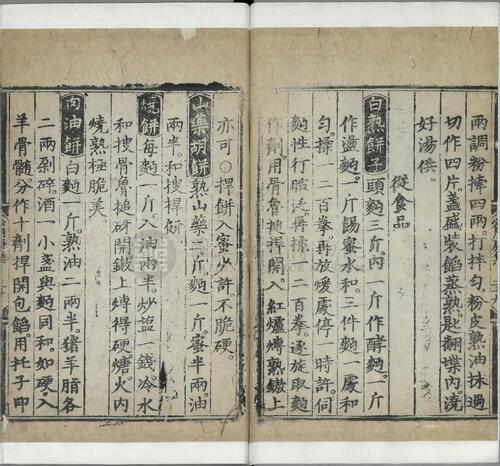 兩調粉捧四兩打拌勻粉皮熟油抹過
切作四片盞盛裝餡蒸熟匙翻楪內澆
好湯供
從食品
白熟餅子頭麪三斤內一斤作酵麪一斤
作燙麪一斤餳蜜水和三件麪一處和
勻揉一二百拳再放煖處停一時許伺
麪性行暄泛再揉一二百拳逐旋取麪
作劑用骨魯搥桿開入紅爐煿熟鏾上
亦可○捍餅入蜜少許不脆硬
山藥胡餅熟山藥二斤麪一斤蜜半兩油
半兩和搜捍餅
燒餅每麪一斤入油兩半炒塩一錢冷水
和搜骨魯搥砑開鏾上煿得硬煻火內
燒熟極脆美
肉油餅白麪一斤熟油二兩半猪羊脂各
二兩剁碎酒一小盞與麪同和如硬入
羊骨髓分作十劑捍開包餡用托子印